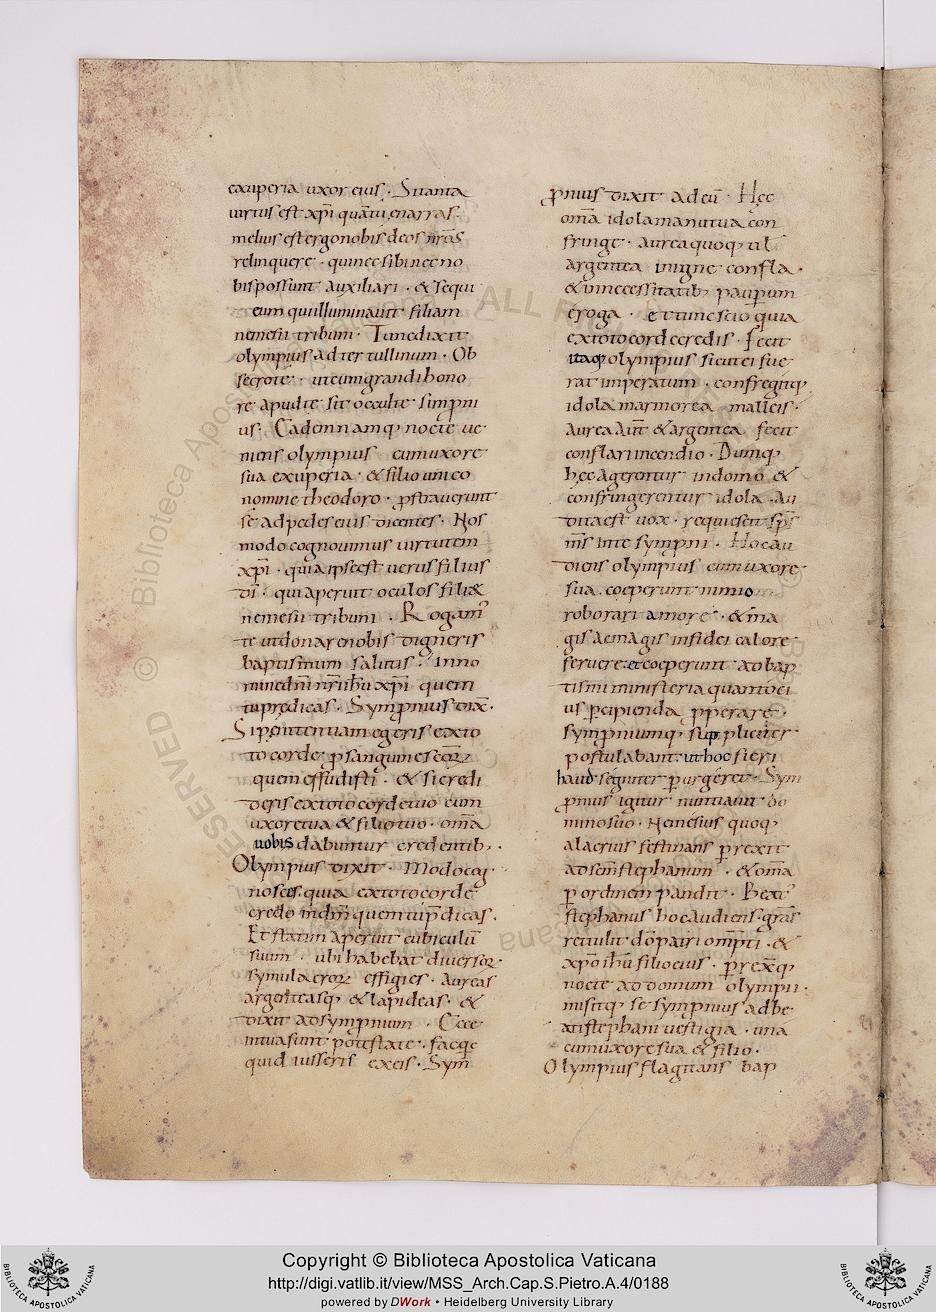 exuperia uxor eius · Si tanta
uirtus est xp̄i quātū enarras ·
melius est ergo nobis deos nr̄as
relinquere · qui nec sibi nec no
bis possunt auxiliari · & sequi
eum qui illuminauit filiam
nemesii tribuni · Tunc dixit
olympius ad tertullinum · Ob
secro te · ut cum grandi hono
re apud te sit occulte simp̄ni
us · Eadem namq; nocte ue
niens olympius cum uxore
sua exuperia · & filio unico
nomine theodoro · p̄strauerunt
se ad pedes eius dicentes · Nos
modo cognouimus uirtutem
xp̄i · quia ipse est uerus filius
dī · qui aperuit oculos filiæ
nemesii tribuni · Rogam'
te ut donare nobis digneris
baptismum salutis · in no
mine dn̄i nr̄i ihū xp̄i quem
tu predicas · Symp̄nius dix̄ ·
Si penitentiam egeris ex to
to corde · p sanguine scōꝝ
quem effudisti · & si credi
deris ex toto corde tuo cum
uxore tua & filio tuo · om̄a
uobis dabuntur credentib; ·
Olympius dixit · Modo cog
nosces quia ex toto corde
credo in dn̄m quem tu p̄dicas ·
Et statim aperuit cubiculū
suum · ubi habebat diuersoꝝ ·
symulacroꝝ effigies · aureas
argenteasq; & lapideas · &
dixit ad symp̄nium · Ecce
in tua sunt potestate · facq;
quid iusseris ex eis · Sym
p̄nius dixit ad eū · Hec
om̄a idola manu tua con
fringe · aurea quoq; ul̄
argentea in igne confla ·
& uin necessitatib; paup̄um
eroga · et tunc scio quia
ex toto corde credis · Fecit
itaq; olympius sicut ei fue
rat imperatum · confregitq;
idola marmorea malleis ·
aurea aut̄ & argentea fecit
conflari incendio · Dumq;
hec agerentur in domo &
confringerentur idola · au
dita est uox · requiescit sp̄s
m̄s in te symp̄ni · Hoc au
diens olympius cum uxore
sua · coeperunt nimio
roborari amore · & ma
gis ac magis in fidei calore
feruere · et coeperunt ad bap
tismi ministeria quantoci
us p̄cipienda p̄perare ·
symp̄niumq; suppliciter
postulabant · ut hoc fieri
haud segniter p̄urgeret · Sym
p̄nius igitur nuntiauit do
mino suo · Nemesius quoq;
alacrius festinans p̄rexit
ad scm̄ stephanum · & om̄a
p ordinem pandit · Beat'
stephanus hoc audiens · gr̄as
retulit dō patri omp̄ti · &
xp̄o ihū filio eius · p̄rexitq;
nocte ad domum olympii ·
misitq; se symp̄nius ad be
ati stephani uestigia · una
cum uxore sua & filio ·
Olympius flagitans bap
© Biblioteca Apostolica Vaticana
ALL RIGHTS RESERVED
Copyright © Biblioteca Apostolica Vaticana
http://digi.vatlib.it/view/MSS_Arch.Cap.S.Pietro.A.4/0188
powered by DWork • Heidelberg University Library
BIBLIOTECA APOSTOLICA VATICANA
BIBLIOTECA APOSTOLICA VATICANA